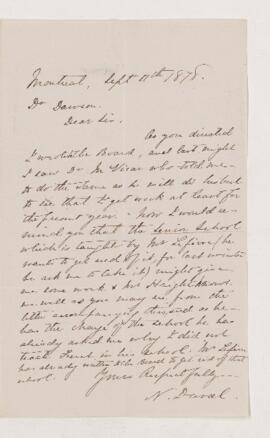 Montreal, Sept 11th 1878.
Dr Dawson.
Dear Sir.
As you directed
I wrote the Board, and last night
I saw Dr McVicar who told me
to do the same as he will do his best
to see that I get work at least for
the present year. Now I would re-
mind you that the senior School
which is taught by Mr Lefevre (he
wants to get rid of it, for last winter
he ask me to take it) might give
me some work & Mr Haight knows
me well as you may see from the
letter accompanying this, and as he
has the charge of the school he has
already asked me why I did not
teach French in his school. Mr Lefevre
has already written the Board to get rid of that
school.
Yours Respectfully
N. Duval.